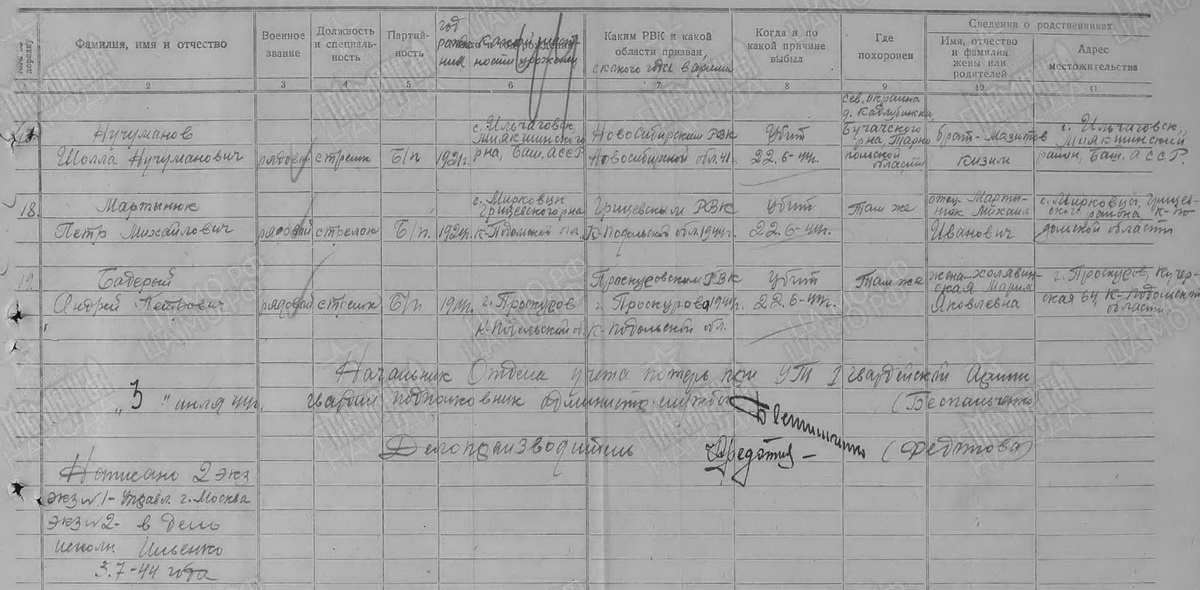 Сведения о родственниках
Фамилия, имя и отчество
Военное звание
Должность и специальность
Партийность
год рождения
Каким РВК и какой области призван,
Когда и по какой причине выбыл
Где похоронен
Имя, отчество и фамилия жены или родителей
Адрес местожительства
2 3 4 5 6 7 8 9 10 11
Нучуманов
Шолла Нучуманович рядовой стрелок Б/п 1921г.
с. Ильчаговск, Миякшинского р-на, Баш. АССР
Новосибирским РВК Новосибирской обл. 41г.
Убит 22.6-44г.
сев. окраина д. Каблубинка, Бучачского р-на, Тарнопольской области
брат-Мазитов
с. Ильчаговск, Миякшинский район, Баш. АССР.
18. Мартынюк
Петр Михайлович рядовой стрелок Б/п. 1924г.
с. Мирковцы Грицевского р-на К-Подольской обл.
Грицевским РВК К-Подольской обл. 1944г.
Убит 22.6-44г.
Там же
отец-Мартынюк Михаил Иванович
с. Мирковцы, Грицевского района К-Подольской области
19. Бадерый
Андрей Петрович рядовой стрелок Б/п
г. Проскуров К-Подольской об.
Проскуровским РВК г. Проскуров 1944г. К-Подольской обл.
Убит 22.6-44г.
Там же
жена-Холявинская Мария Яковлевна
г. Проскуров, К-Подольской области
Начальник Отдела учета потерь при УТ 1 гвардейской Армии
„3" июля 44г. гвардии подполковник административ. службы (Беспальченко)
Делопроизводитель (Федотова)
Написано 2 экз
экз №1- Управл. г. Москва
экз №2- в дело
исполн Ильенко
3.7-44 года